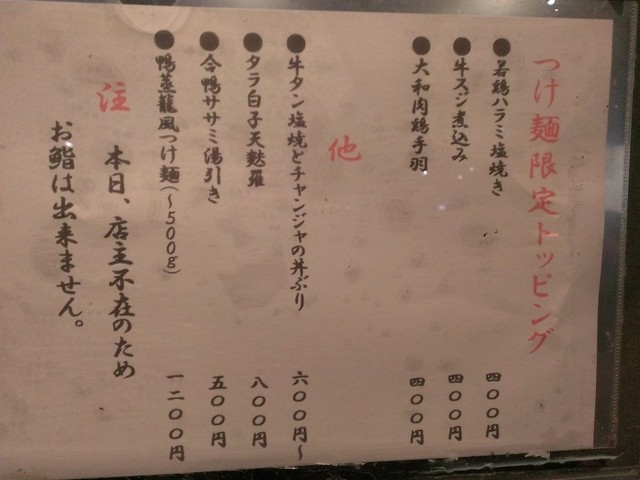 つけ麺限定トッピング
●若鶏ハラミ塩焼き 四〇〇円
●牛スジ煮込み 四〇〇円
●大和肉鶏手羽 四〇〇円
他
●牛タン塩焼とチャンジャの丼ぶり 六〇〇円～
●タラ白子天麩羅 八〇〇円
●合鴨ササミ湯引き 五〇〇円
●鴨蒸籠風つけ麺(～500g) 一二〇〇円
注
本日、店主不在のため
お鮨は出来ません。